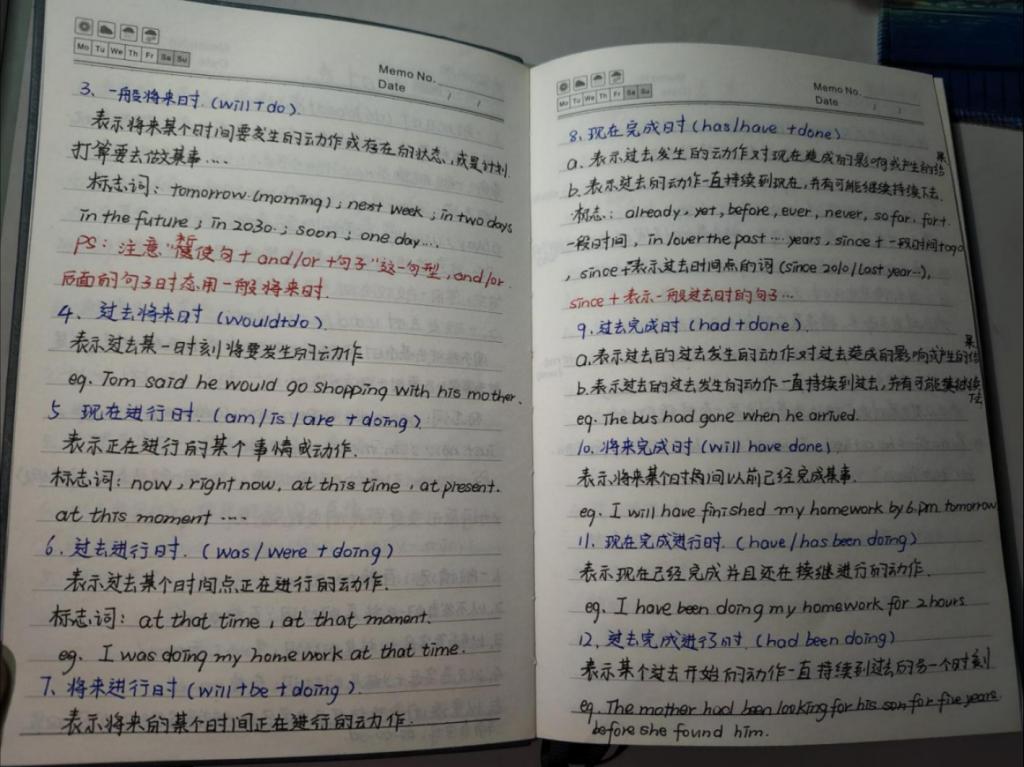 Mo Tu We Th Fr Sa Su
Memo No.
Date / /
3、一般将来时.(will+do).
表示将来某个时间要发生的动作或存在的状态,或是计划
打算要去做某事....
标志词: tomorrow.(morning); next week; in two days
in the future; in 2030.; soon; one day....
PS: 注意"祈使句+ and/or +句子"这一句型, and/or.
后面的句子时态用一般将来时.
4、过去将来时(would+do).
表示过去某一时刻将要发生的动作
eg. Tom said he would go shopping with his mother.
5 现在进行时.(am/is/are + doing)
表示正在进行的某个事情或动作.
标志词: now, right now, at this time, at present.
at this moment ....
6、过去进行时.(was/were + doing)
表示过去某个时间点正在进行的动作.
标志词: at that time, at that moment.
eg. I was doing my home work at that time.
7、将来进行时(will+be+doing).
表示将来的某个时间正在进行的动作.
Mo Tu We Th Fr Sa Su
Memo No.
Date / /
8、现在完成时(has/have +done)
a. 表示过去发生的动作对现在造成的影响或产生的结果
b. 表示过去的动作一直持续到现在,并有可能继续持续下去.
标志: already, yet, before, ever, never, so far, for+
一段时间, in/over the past ... years, since + 一段时间+ago
, since+表示过去时间点的词(since 2010/last year...),
since+表示一般过去时的句子...
9、过去完成时(had+done).
a. 表示过去的过去发生的动作对过去造成的影响或产生的结果
b. 表示过去的过去发生的动作一直持续到过去,并有可能继续持续下去.
eg. The bus had gone when he arrived.
10、将来完成时(will have done)
表示将来某个时间以前已经完成某事.
eg. I will have finished my homework by 6 pm tomorrow
11、现在完成进行时.(have/has been doing)
表示现在已经完成并且还在接继进行的动作.
eg. I have been doing my homework for 2 hours
12、过去完成进行时.(had been doing)
表示某个过去开始的动作一直持续到过去的另一个时刻
eg. The mother had been looking for his son for five years.
before she found him.